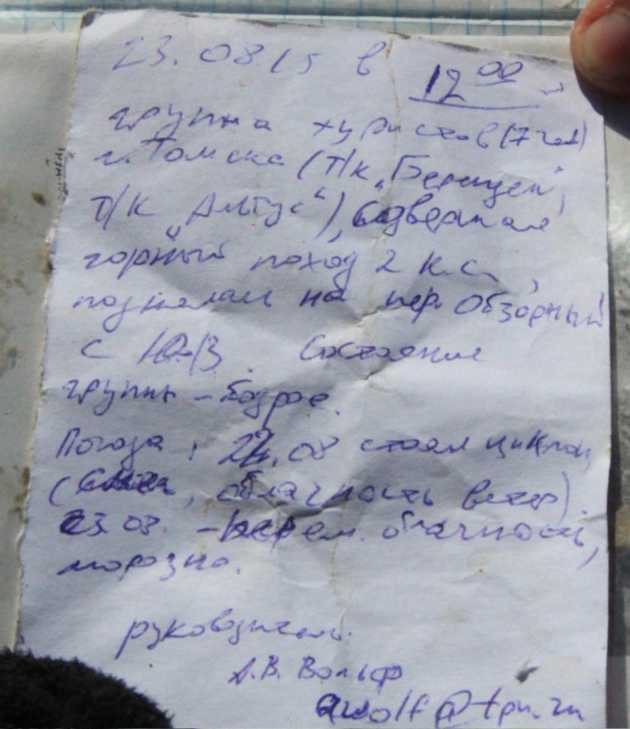 23.08.15 в 12⁰⁰
группа туристов (7 чел)
г. Томска (т/к „Берендеи",
т/к „Амтус"), совершая
горный поход 2 к.с.,
поднялась на пер. Обзорный
с Ю-В. Состояние
группы – бодрое.
Погода: 22.08 стоял циклон
(облачность, ветер).
23.08. – перем. облачность,
морозно.
руководитель:
А.В. Вольф
awolf@tpu.ru